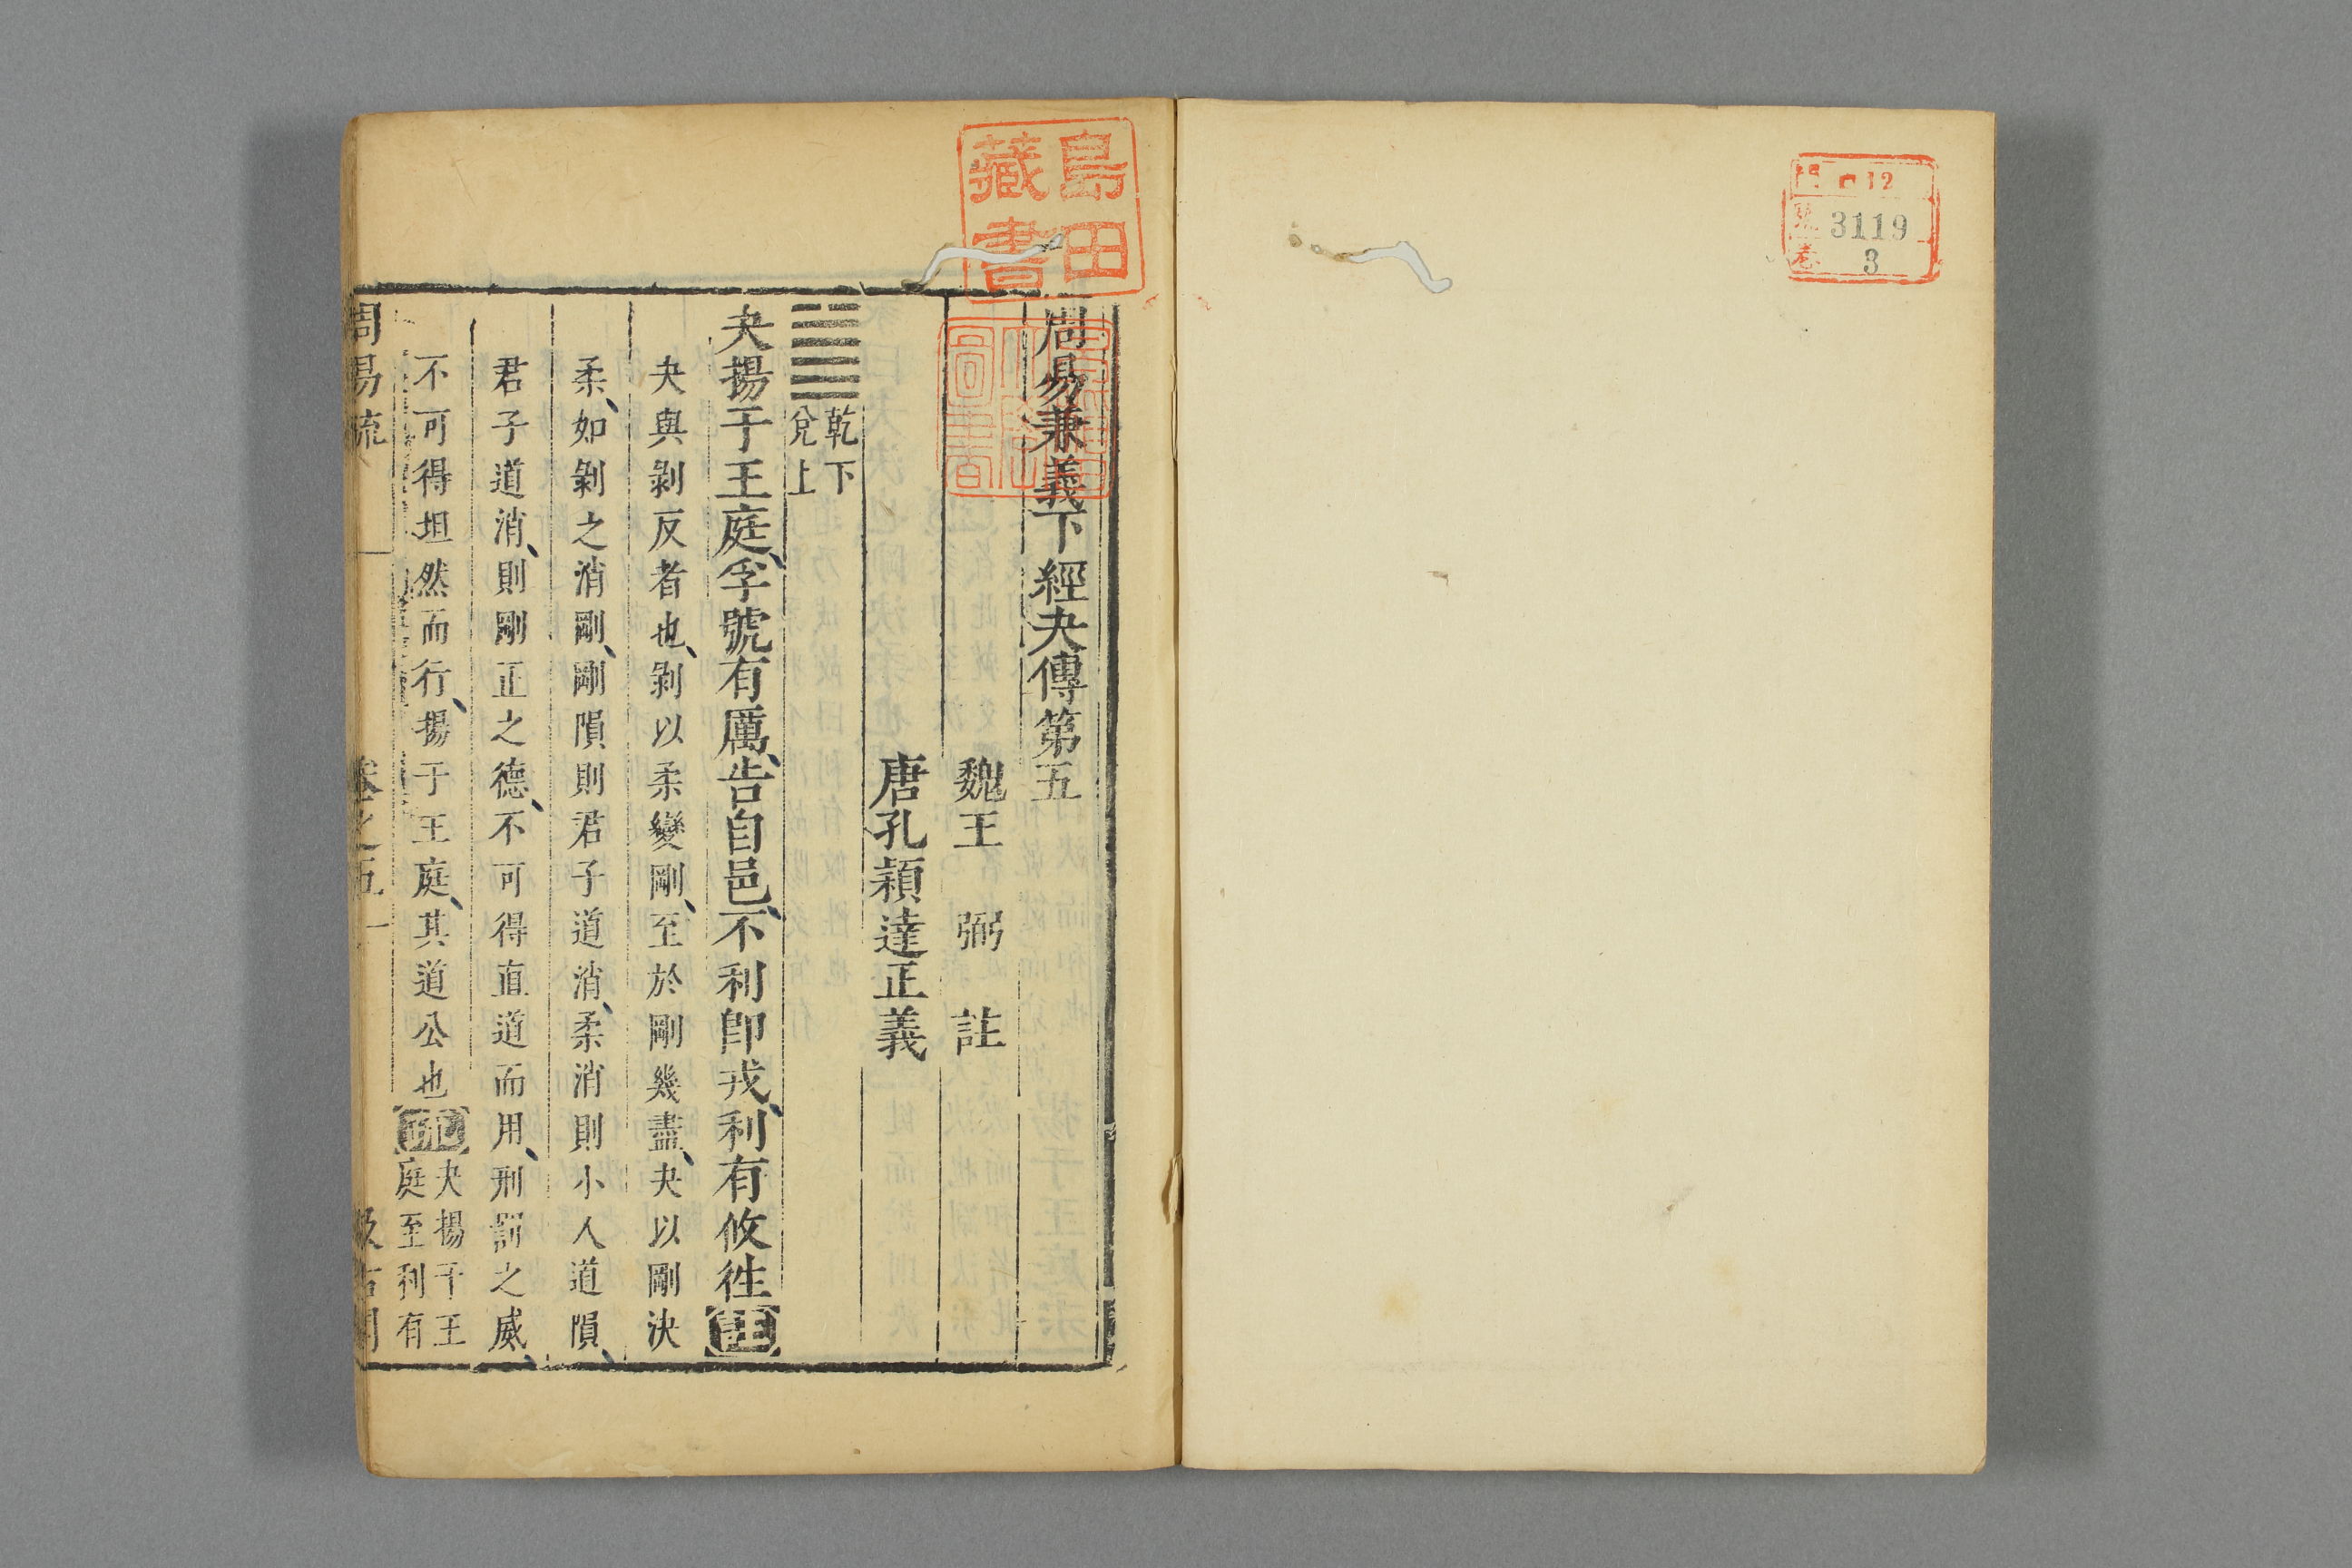 門 12
號 3119
卷 3
島田
藏書
周易兼義下經夬傳第五
魏王 弼 註
唐孔穎達正義
乾下
兌上
夬揚于王庭孚號有厲告自邑不利卽戎利有攸徃註
夬與剝反者也剝以柔變剛至於剛幾盡夬以剛決
柔如剝之消剛剛隕則君子道消柔消則小人道隕
君子道消則剛正之德不可得直道而用刑罰之威
不可得坦然而行揚于王庭其道公也疏夬揚于王
庭至利有
周易疏 卷之五 一 汲古閣